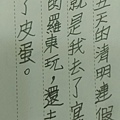 五天的清明連假
就是我去了宜
的羅東玩，還
了皮蛋。